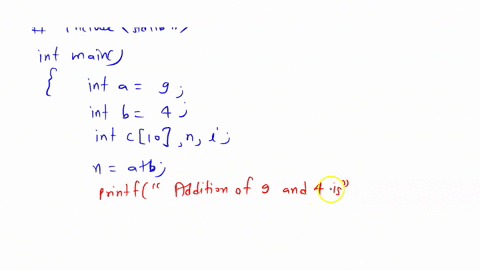 int main()
{ int a = 9;
int b = 4;
int c[10], n, i;
n = a+b;
printf(" Addition of 9 and 4 is"